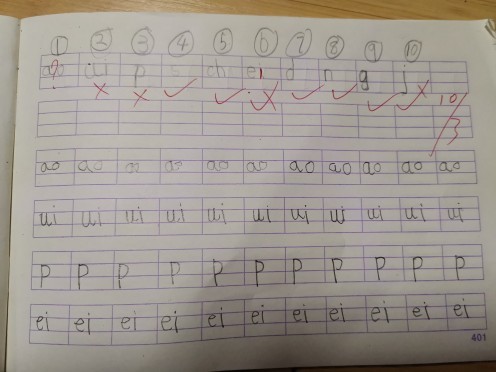 ① ② ③ ④ ⑤ ⑥ ⑦ ⑧ ⑨ ⑩
ui p s ch ei d n g j
ao ao ao ao ao ao ao ao ao ao ao
ui ui ui ui ui ui ui ui ui ui ui
p p p p p p p p p p p
ei ei ei ei ei ei ei ei ei ei ei
401